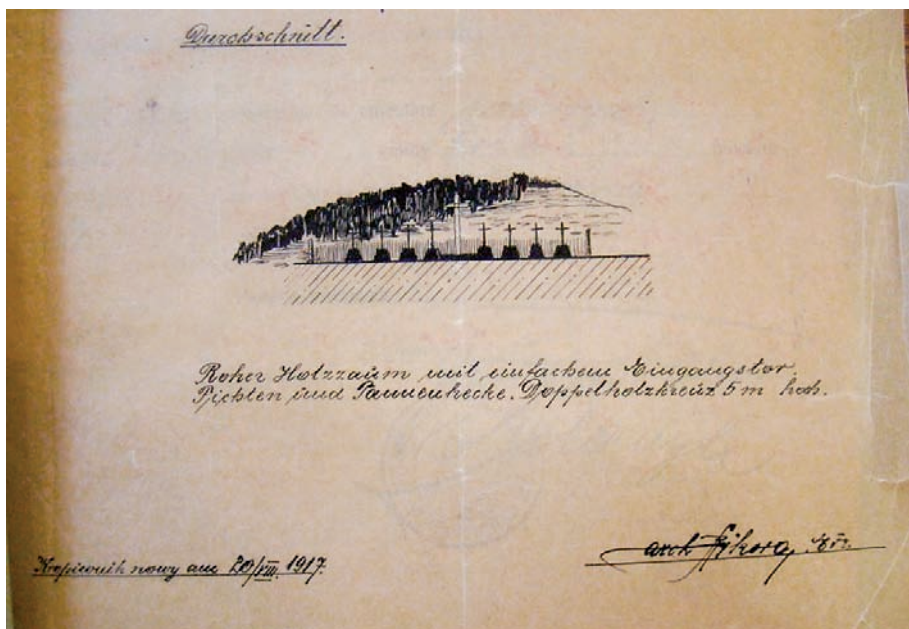 Durchschnitt.
Roher Holzzaum mit einfachem Eingangstor.
Fichten und Tannenhecke. Doppelholzkreuz 5 m hoch.
Kropiwnik nowy am 20/VIII. 1917.
arch Sikora